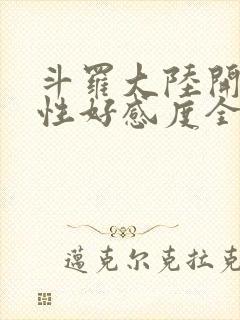 斗羅大陸開
性好感度全
邁克尔克拉克